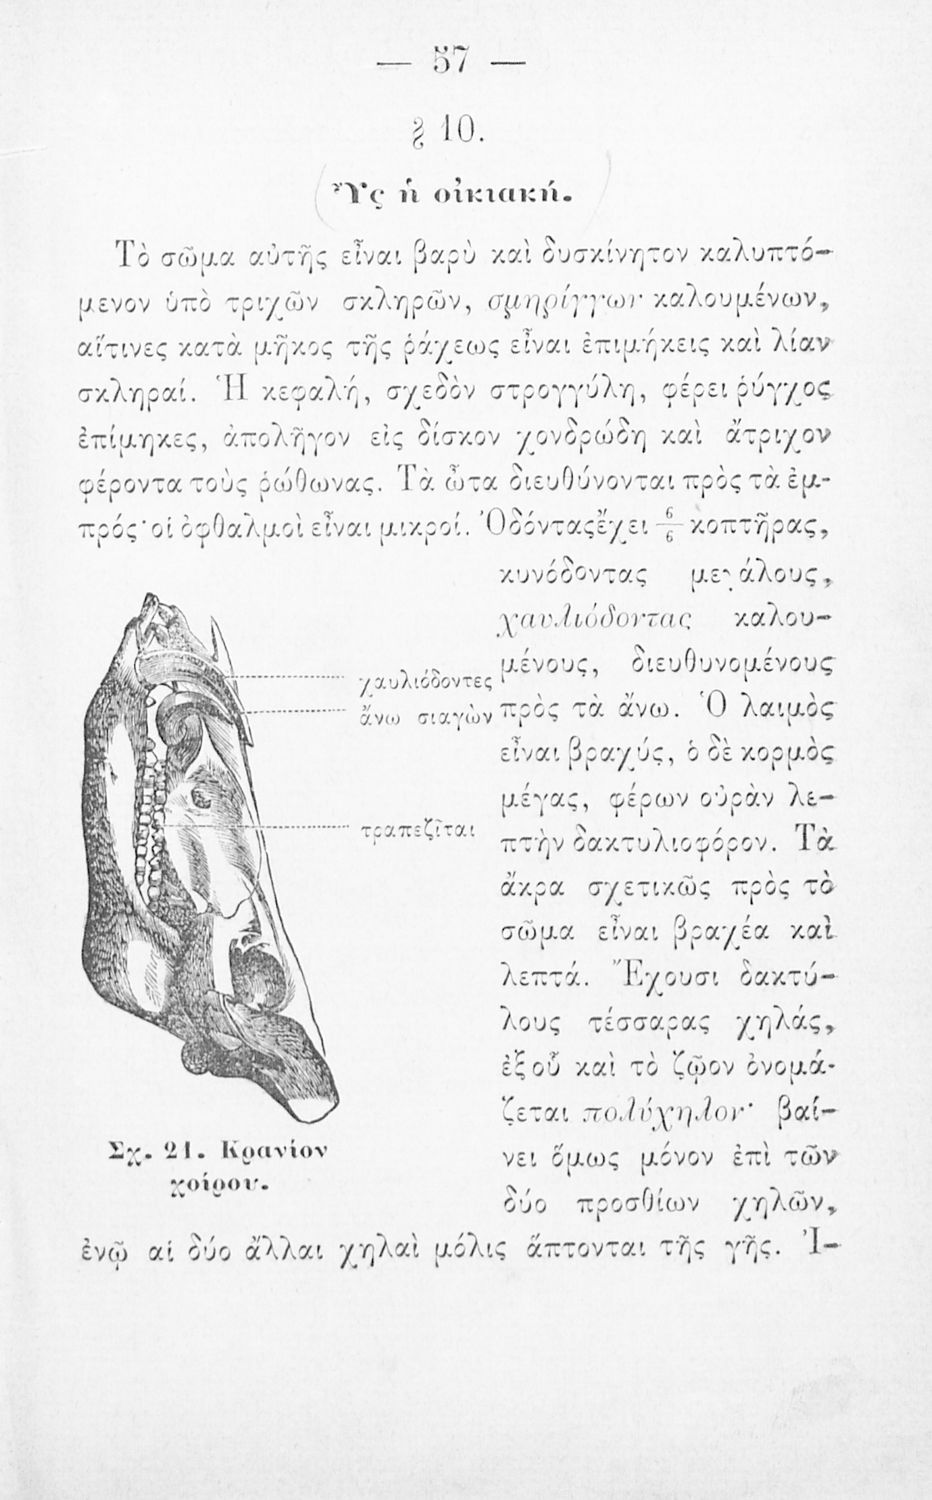 — 57 —
§ 10.
Ὗς ἡ οἰκιακή.
Τὸ σῶμα αὐτῆς εἶναι βαρὺ καὶ δυσκίνητον καλυπτό-
μενον ὑπὸ τριχῶν σκληρῶν, σμηρίγγων καλουμένων,
αἵτινες κατὰ μῆκος τῆς ῥάχεως εἶναι ἐπιμήκεις καὶ λίαν
σκληραί. Ἡ κεφαλή, σχεδὸν στρογγύλη, φέρει ῥύγχος
ἐπίμηκες, ἀπολῆγον εἰς δίσκον χονδρώδη καὶ ἄτριχον
φέροντα τοὺς ῥώθωνας. Τὰ ὦτα διευθύνονται πρὸς τὰ ἐμ-
πρός· οἱ ὀφθαλμοὶ εἶναι μικροί. Ὀδόντας ἔχει 6/6 κοπτῆρας,
κυνόδοντας μεγάλους,
χαυλιόδοντας καλου-
μένους, διευθυνομένους
πρὸς τὰ ἄνω. Ὁ λαιμὸς
εἶναι βραχύς, ὁ δὲ κορμὸς
μέγας, φέρων οὐρὰν λε-
πτὴν δακτυλιοφόρον. Τὰ
ἄκρα σχετικῶς πρὸς τὸ
σῶμα εἶναι βραχέα καὶ
λεπτά. Ἔχουσι δακτύ-
λους τέσσαρας χηλάς,
ἐξ οὗ καὶ τὸ ζῷον ὀνομά-
ζεται πολύχηλον· βαί-
νει ὅμως μόνον ἐπὶ τῶν
δύο προσθίων χηλῶν,
χαυλιόδοντες
ἄνω σιαγὼν
τραπεζῖται
Σχ. 21. Κρανίον
χοίρου.
ἐνῷ αἱ δύο ἄλλαι χηλαὶ μόλις ἅπτονται τῆς γῆς. Ἰ-